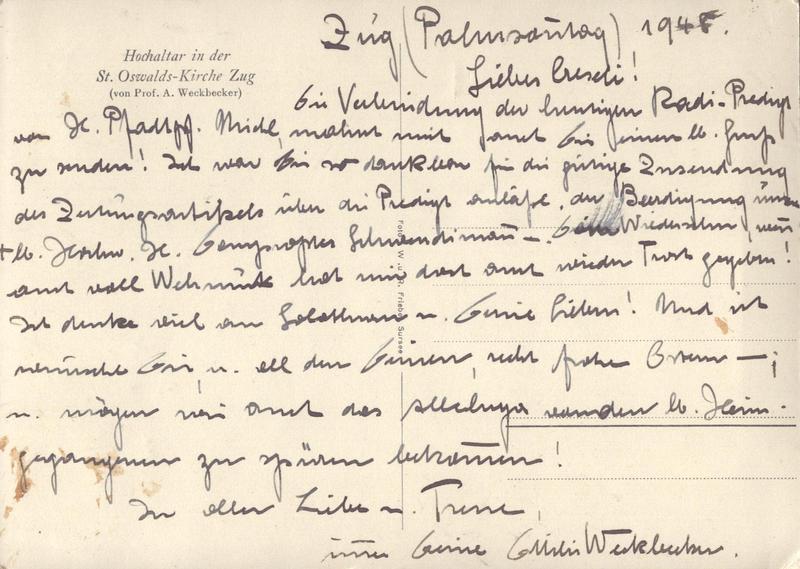 Hochaltar in der
St. Oswalds-Kirche Zug
(von Prof. A. Weckbecker)
Zug (Palmsonntag) 1945.
Liebes Creseli!
bei Verkündung der heutigen Radi-Predigt
von H. Pfarr Michl, mahnt mich auch bei feinen lb. Gruß
zu senden! Ich war bei so dankbar für die gütige Zusendung
des Zeitungsartikels über die Predigt anläßl. der Beerdigung unseres
+ lb. Hochw. H. Schwendimann –. Wiedersehn, wenn
auch voll Wehmut hat mir doch auch wieder Trost gegeben!
Ich denke viel an u. Deine Lieben! Und ich
wünsche Dir, u. all den Deinen, recht frohe Ostern –;
u. mögen wir auch das Alleluja von den lb. Heim-
gegangenen zu spüren bekommen!
In aller Liebe u. Treue,
immer Deine Ottilie Weckbecker.
Foto W. u. R. Friebel Sursee